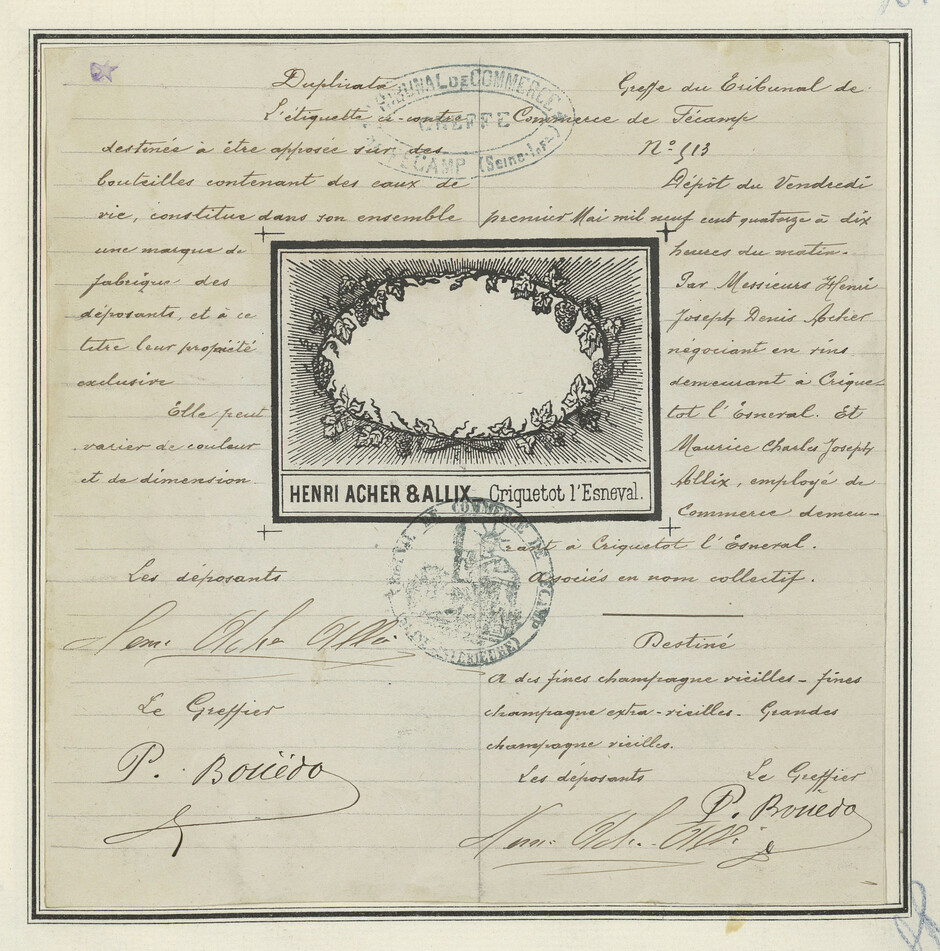 Duplicata
L'étiquette ci-contre
destinée à être apposée sur des
bouteilles contenant des eaux de
vie, constitue dans son ensemble
une marque de
fabrique des
déposants, et à ce
titre leur propriété
exclusive
Elle peut
varier de couleur
et de dimension.
Les déposants
Le Greffier
P. Bouëdo
TRIBUNAL DE COMMERCE
GREFFE
FECAMP (Seine-Infre)
Greffe du Tribunal de
Commerce de Fécamp
N° 513
Dépôt du Vendredi
premier Mai mil neuf cent quatorze à dix
heures du matin.
Par Messieurs Henri
Joseph Denis Acher
négociant en vins
demeurant à Crique-
tot l'Esneval. Et
Maurice Charles Joseph
Allix, employé de
Commerce demeu-
rant à Criquetot l'Esneval.
Associés en nom collectif.
HENRI ACHER & ALLIX_ Criquetot l'Esneval.
TRIBUNAL DE COMMERCE DE FECAMP
(SEINE INFERIEURE)
Destiné
A des fines champagne vieilles - fines
champagne extra-vieilles - Grandes
champagne vieilles.
Les déposants Le Greffier
P. Bouëdo